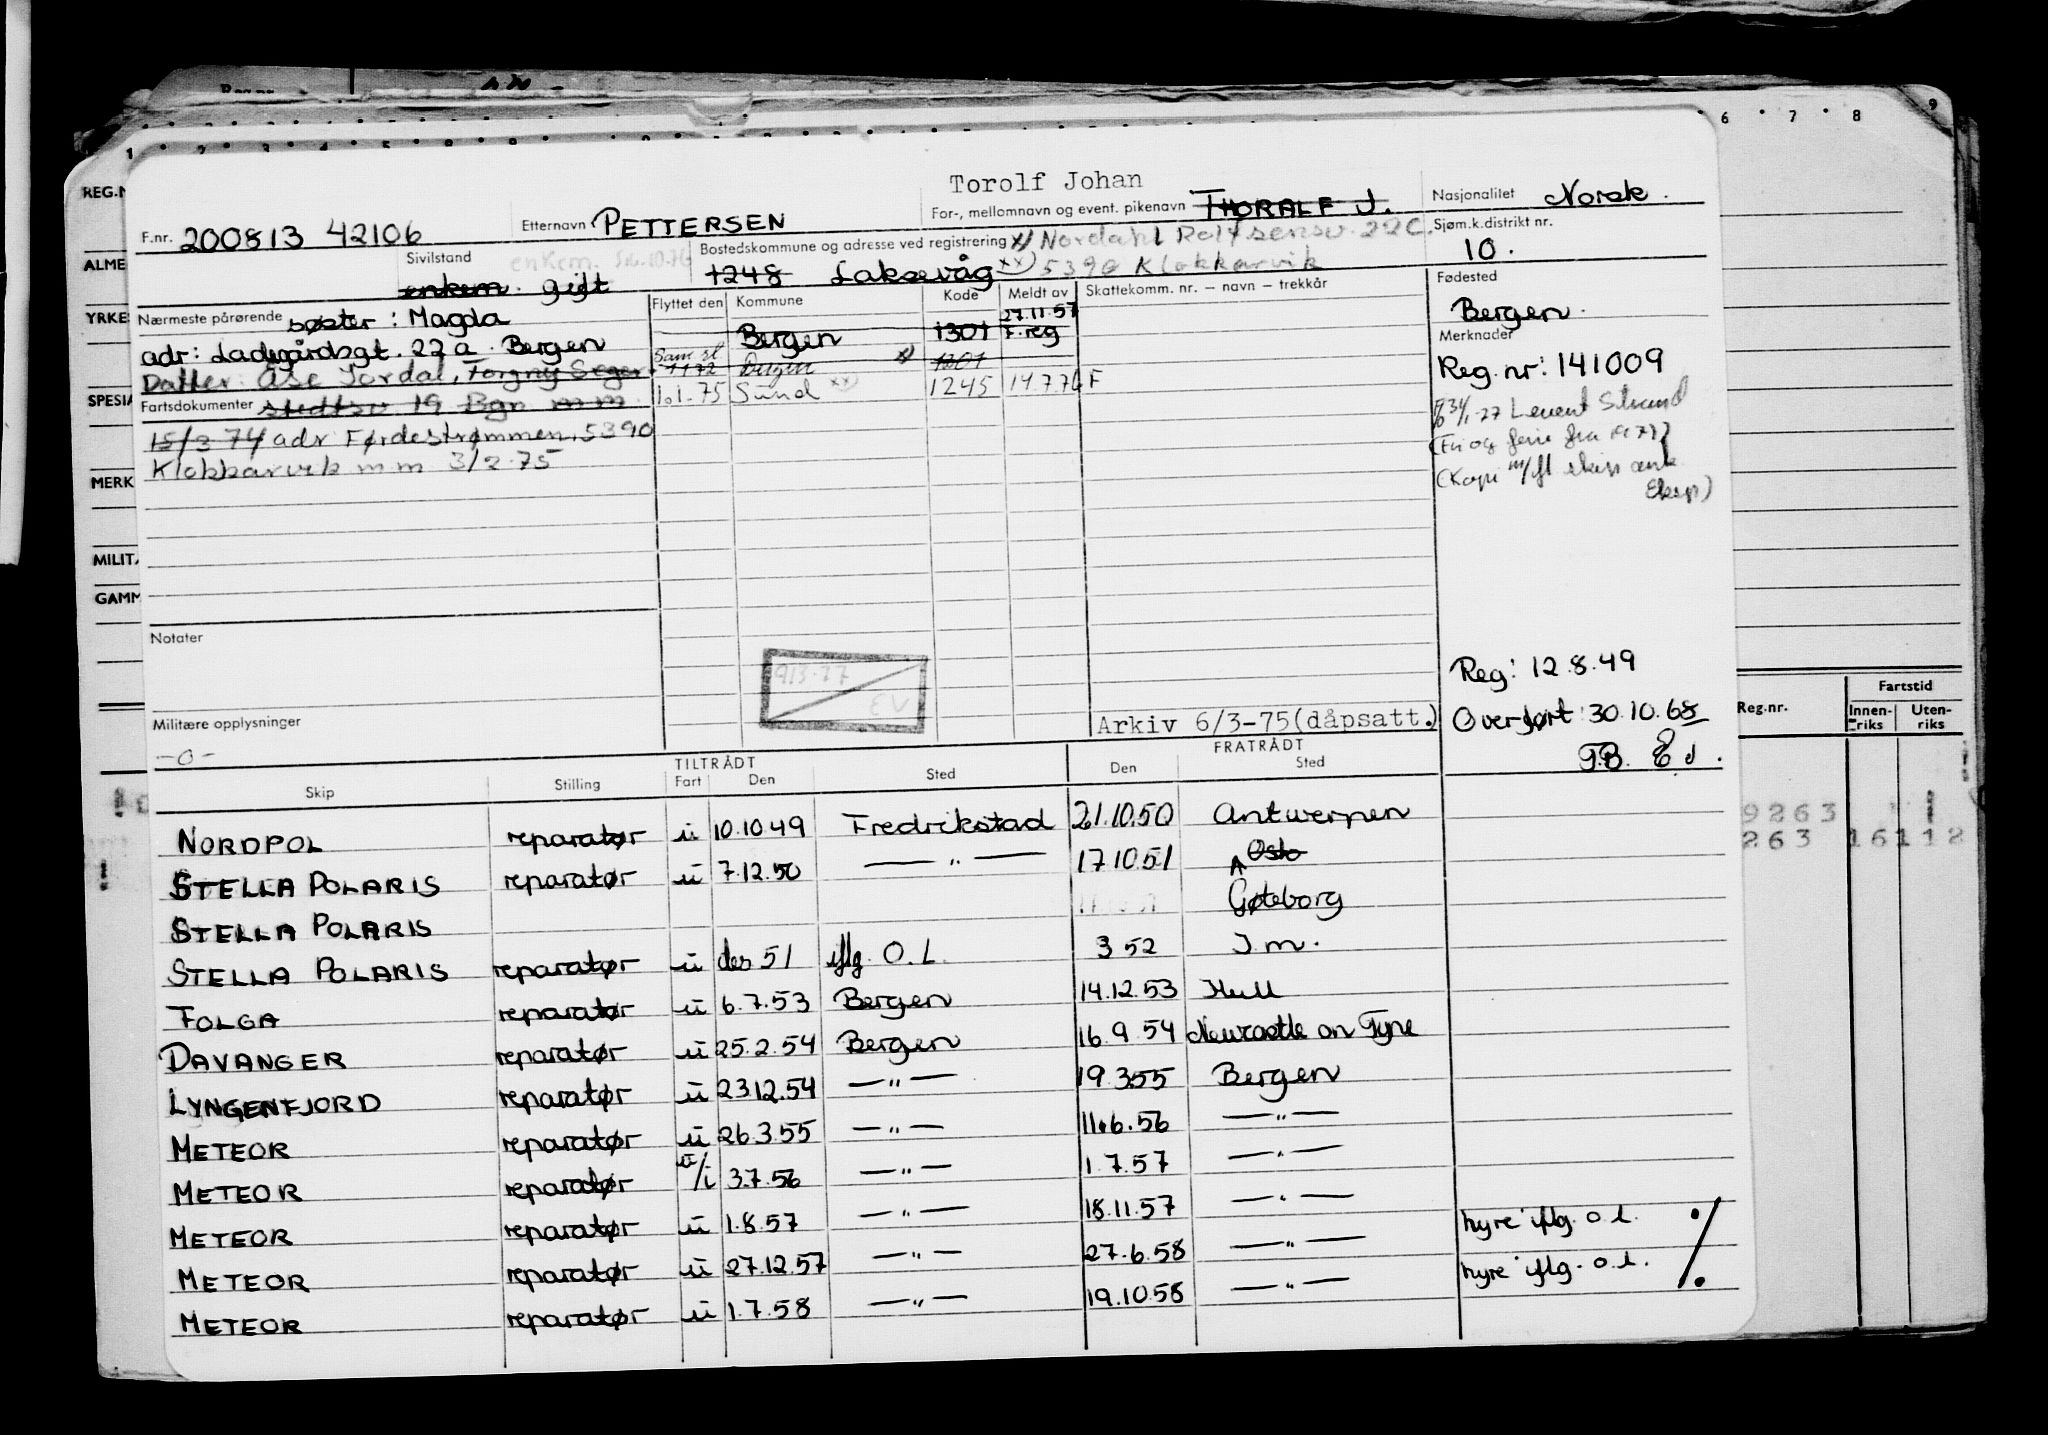 Reg.nr.
1 2 3 4 5 6 7 8 9
REG.N
ALME
YRKE
SPESIA
MERK
MILITA
GAMM
Torolf Johan
F.nr. 200813 42106
Etternavn PETTERSEN
For-, mellomnavn og event. pikenavn THORALF J.
Nasjonalitet Norsk.
Sivilstand enkem. gift
Bostedskommune og adresse ved registrering x) Nordahl Rolfsensv. 22C.
1248 Laksevåg xx) 5390 Klokkarvik
Sjøm.k.distrikt nr.
10.
Nærmeste pårørende søster : Magda
adr: Ladegårdsgt. 22a. Bergen
Datter: Åse Jordal, Torgny Seger
Fartsdokumenter stedtsv 19 Bgn mm
15/3 74 adr Førdestrømmen, 5390
Klokkarvik mm 3/2-75
Flyttet den Kommune Kode Meldt av
Bergen 1301 27.11.57 F.reg
1172 Bergen x) 1301
1.1-75 Sund xx) 1245 14.7.76 F
Skattekomm. nr. — navn — trekkår
Fødested
Bergen.
Merknader
Reg. nr: 141009
Reg: 12.8.49
Overført 30.10.68
Notater
Militære opplysninger
-o-
Arkiv 6/3-75(dåpsatt.)
Reg.nr. Fartstid
Innen-riks Uten-riks
9263
263 16112
TILTRÅDT FRATRÅDT
Skip Stilling Fart Den Sted Den Sted
NORDPOL reparatør u 10.10.49 Fredrikstad 21.10.50 Antwerpen
STELLA POLARIS reparatør u 7.12.50 — " — 17.10.51 Oslo
STELLA POLARIS Gøteborg
STELLA POLARIS reparatør u des 51 iflg. O.L. 3 52 I.m.
FOLGA reparatør u 6.7.53 Bergen 14.12.53 Hull
DAVANGER reparatør u 25.2.54 Bergen 16.9.54 Newcastle on Tyne
LYNGENFJORD reparatør u 23.12.54 — " — 19.3.55 Bergen
METEOR reparatør u 26.3.55 — " — 11.6.56 — " —
METEOR reparatør u/i 3.7.56 — " — 1.7.57 — " —
METEOR reparatør u 1.8.57 — " — 18.11.57 — " — hyre iflg. o.l.
METEOR reparatør u 27.12.57 — " — 27.6.58 — " — hyre iflg. o.l.
METEOR reparatør u 1.7.58 — " — 19.10.58 — " —